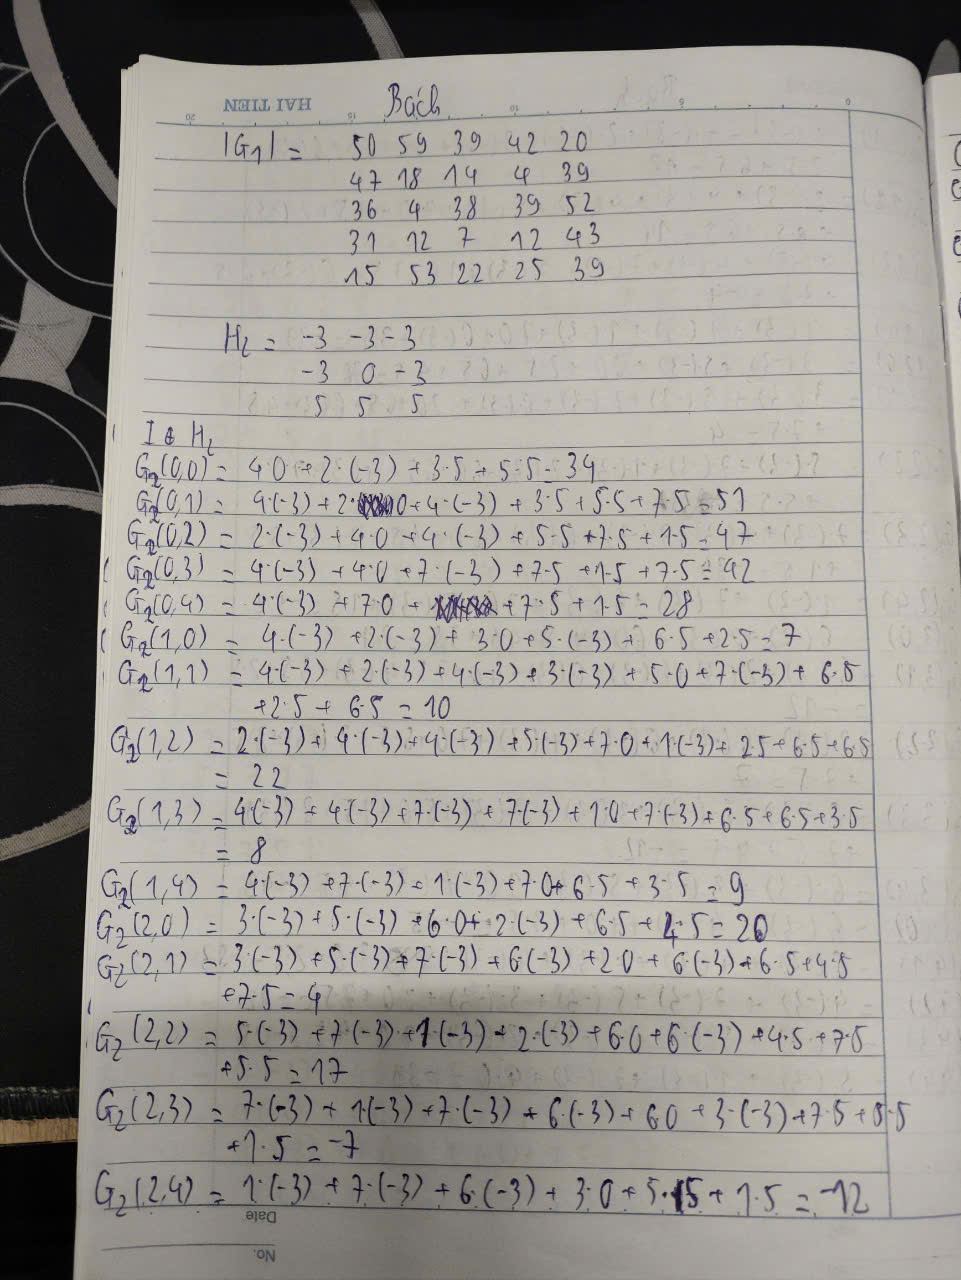 HAI TIEN
Bách
20 15 10 5 0
|G1| = 50 59 39 42 20
47 18 14 4 39
36 4 38 39 52
31 12 7 12 43
15 53 22 25 39
H2 = -3 -3 -3
-3 0 -3
5 5 5
I ⊗ H2
G2(0,0) = 4·0 + 2·(-3) + 3·5 + 5·5 = 34
G2(0,1) = 4·(-3) + 2·0 + 4·(-3) + 3·5 + 5·5 + 7·5 = 51
G2(0,2) = 2·(-3) + 4·0 + 4·(-3) + 5·5 + 7·5 + 1·5 = 47
G2(0,3) = 4·(-3) + 4·0 + 7·(-3) + 7·5 + 1·5 + 7·5 = 42
G2(0,4) = 4·(-3) + 7·0 + + 7·5 + 1·5 = 28
G2(1,0) = 4·(-3) + 2·(-3) + 3·0 + 5·(-3) + 6·5 + 2·5 = 7
G2(1,1) = 4·(-3) + 2·(-3) + 4·(-3) + 3·(-3) + 5·0 + 7·(-3) + 6·5
+ 2·5 + 6·5 = 10
G2(1,2) = 2·(-3) + 4·(-3) + 4·(-3) + 5·(-3) + 7·0 + 1·(-3) + 2·5 + 6·5 + 6·5
= 22
G2(1,3) = 4·(-3) + 4·(-3) + 7·(-3) + 7·(-3) + 1·0 + 7·(-3) + 6·5 + 6·5 + 3·5
= 8
G2(1,4) = 4·(-3) + 7·(-3) + 1·(-3) + 7·0 + 6·5 + 3·5 = 9
G2(2,0) = 3·(-3) + 5·(-3) + 6·0 + 2·(-3) + 6·5 + 4·5 = 20
G2(2,1) = 3·(-3) + 5·(-3) + 7·(-3) + 6·(-3) + 2·0 + 6·(-3) + 6·5 + 4·5
+ 7·5 = 4
G2(2,2) = 5·(-3) + 7·(-3) + 1·(-3) + 2·(-3) + 6·0 + 6·(-3) + 4·5 + 7·5
+ 5·5 = 17
G2(2,3) = 7·(-3) + 1·(-3) + 7·(-3) + 6·(-3) + 6·0 + 3·(-3) + 7·5 + 5·5
+ 1·5 = -7
G2(2,4) = 1·(-3) + 7·(-3) + 6·(-3) + 3·0 + 5·5 + 1·5 = -12
Date
No.